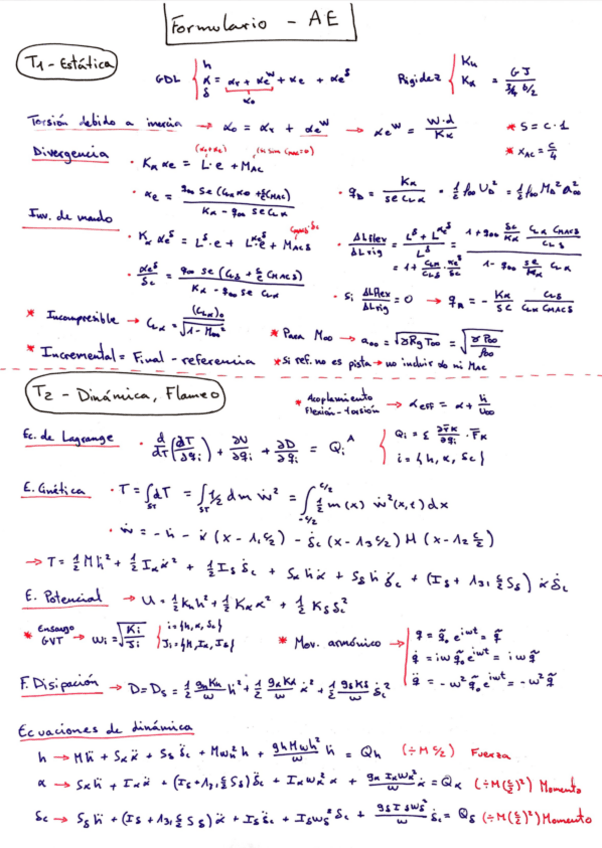 Formulario - AE
T1 - Estática
GDL { h
α = αr + αe^W + αe + αe^δ
α0
δ
Rigidez { Kh
Kα = GJ / (3/4 b/2)
Torsión debido a inercia → α0 = αr + αe^W → αe^W = W·d / Kα
* S = c·1
* xAC = c/4
Divergencia
(α0+αe) (si sim CMAC=0)
· Kα αe = L·e + MAC
· αe = q∞ Se (CLα α0 + c/e CMAC) / (Kα - q∞ Se CLα)
· qD = Kα / (Se CLα) · 1/2 ρ∞ UD² = 1/2 ρ∞ MD² a∞²
Inv. de mando
· Kα αe^δ = L^δ·e + L^αe^δ·e + MACδ
· ΔLflex / ΔLrig = (L^δ + L^αe^δ) / L^δ = (1 + q∞ Sc/Kα CLα CMACδ / CLδ) / (1 - q∞ Se/Kα CLα)
= 1 + CLα/CLδ · αe^δ/δc
· αe^δ/δc = q∞ Se (CLδ + c/e CMACδ) / (Kα - q∞ Se CLα)
· Si ΔLflex / ΔLrig = 0 → qR = - Kα/Sc CLδ / (CLα CMACδ)
* Incompresible → CLα = (CLα)0 / √(1 - M∞²)
* Para M∞ → a∞ = √(γ Rg T∞) = √(γ P∞ / ρ∞)
* Incremental = Final - referencia
* Si ref. no es pista → no incluir α0 ni MAC
T2 - Dinámica, Flameo
* Acoplamiento
Flexión - torsión → αeff = α + ḣ/U∞
Ec. de Lagrange · d/dT (∂T/∂q̇i) + ∂U/∂qi + ∂D/∂q̇i = Qi^A
{ Qi = Σ ∂r̄K/∂qi · F̄K
i = {h, α, δc}
E. Cinética · T = ∫ST dT = ∫ST 1/2 dm ẇ² = ∫-c/2^c/2 1/2 m(x) ẇ²(x,t) dx
· ẇ = - ḣ - α̇ (x - Λ1 c/2) - δ̇c (x - Λ3 c/2) H (x - Λ2 c/2)
→ T = 1/2 M ḣ² + 1/2 Iα α̇² + 1/2 Iδ δ̇c + Sα ḣ α̇ + Sδ ḣ δ̇c + (Iδ + Λ31 c/2 Sδ) α̇ δ̇c
E. Potencial → U = 1/2 Kh h² + 1/2 Kα α² + 1/2 Kδ δc²
* Ensayo
GVT → ωi = √(Ki/Ji) { i = {h, α, δc}
Ji = {M, Iα, Iδ}
* Mov. armónico → { q = q̃0 e^iωt = q̃
q̇ = iω q̃0 e^iωt = iω q̃
q̈ = - ω² q̃0 e^iωt = - ω² q̃
F. Disipación → D = Dδ = 1/2 gh Kh/ω ḣ² + 1/2 gα Kα/ω α̇² + 1/2 gδ Kδ/ω δ̇c²
Ecuaciones de dinámica
h → M ḧ + Sα α̈ + Sδ δ̈c + M ωh² h + gh M ωh²/ω ḣ = Qh (÷ M c/2) Fuerza
α → Sα ḧ + Iα α̈ + (Iδ + Λ31 c/2 Sδ) δ̈c + Iα ωα² α + gα Iα ωα²/ω α̇ = Qα (÷ M (c/2)²) Momento
δc → Sδ ḧ + (Iδ + Λ31 c/2 Sδ) α̈ + Iδ δ̈c + Iδ ωδ² δc + gδ Iδ ωδ²/ω δ̇c = Qδ (÷ M (c/2)²) Momento